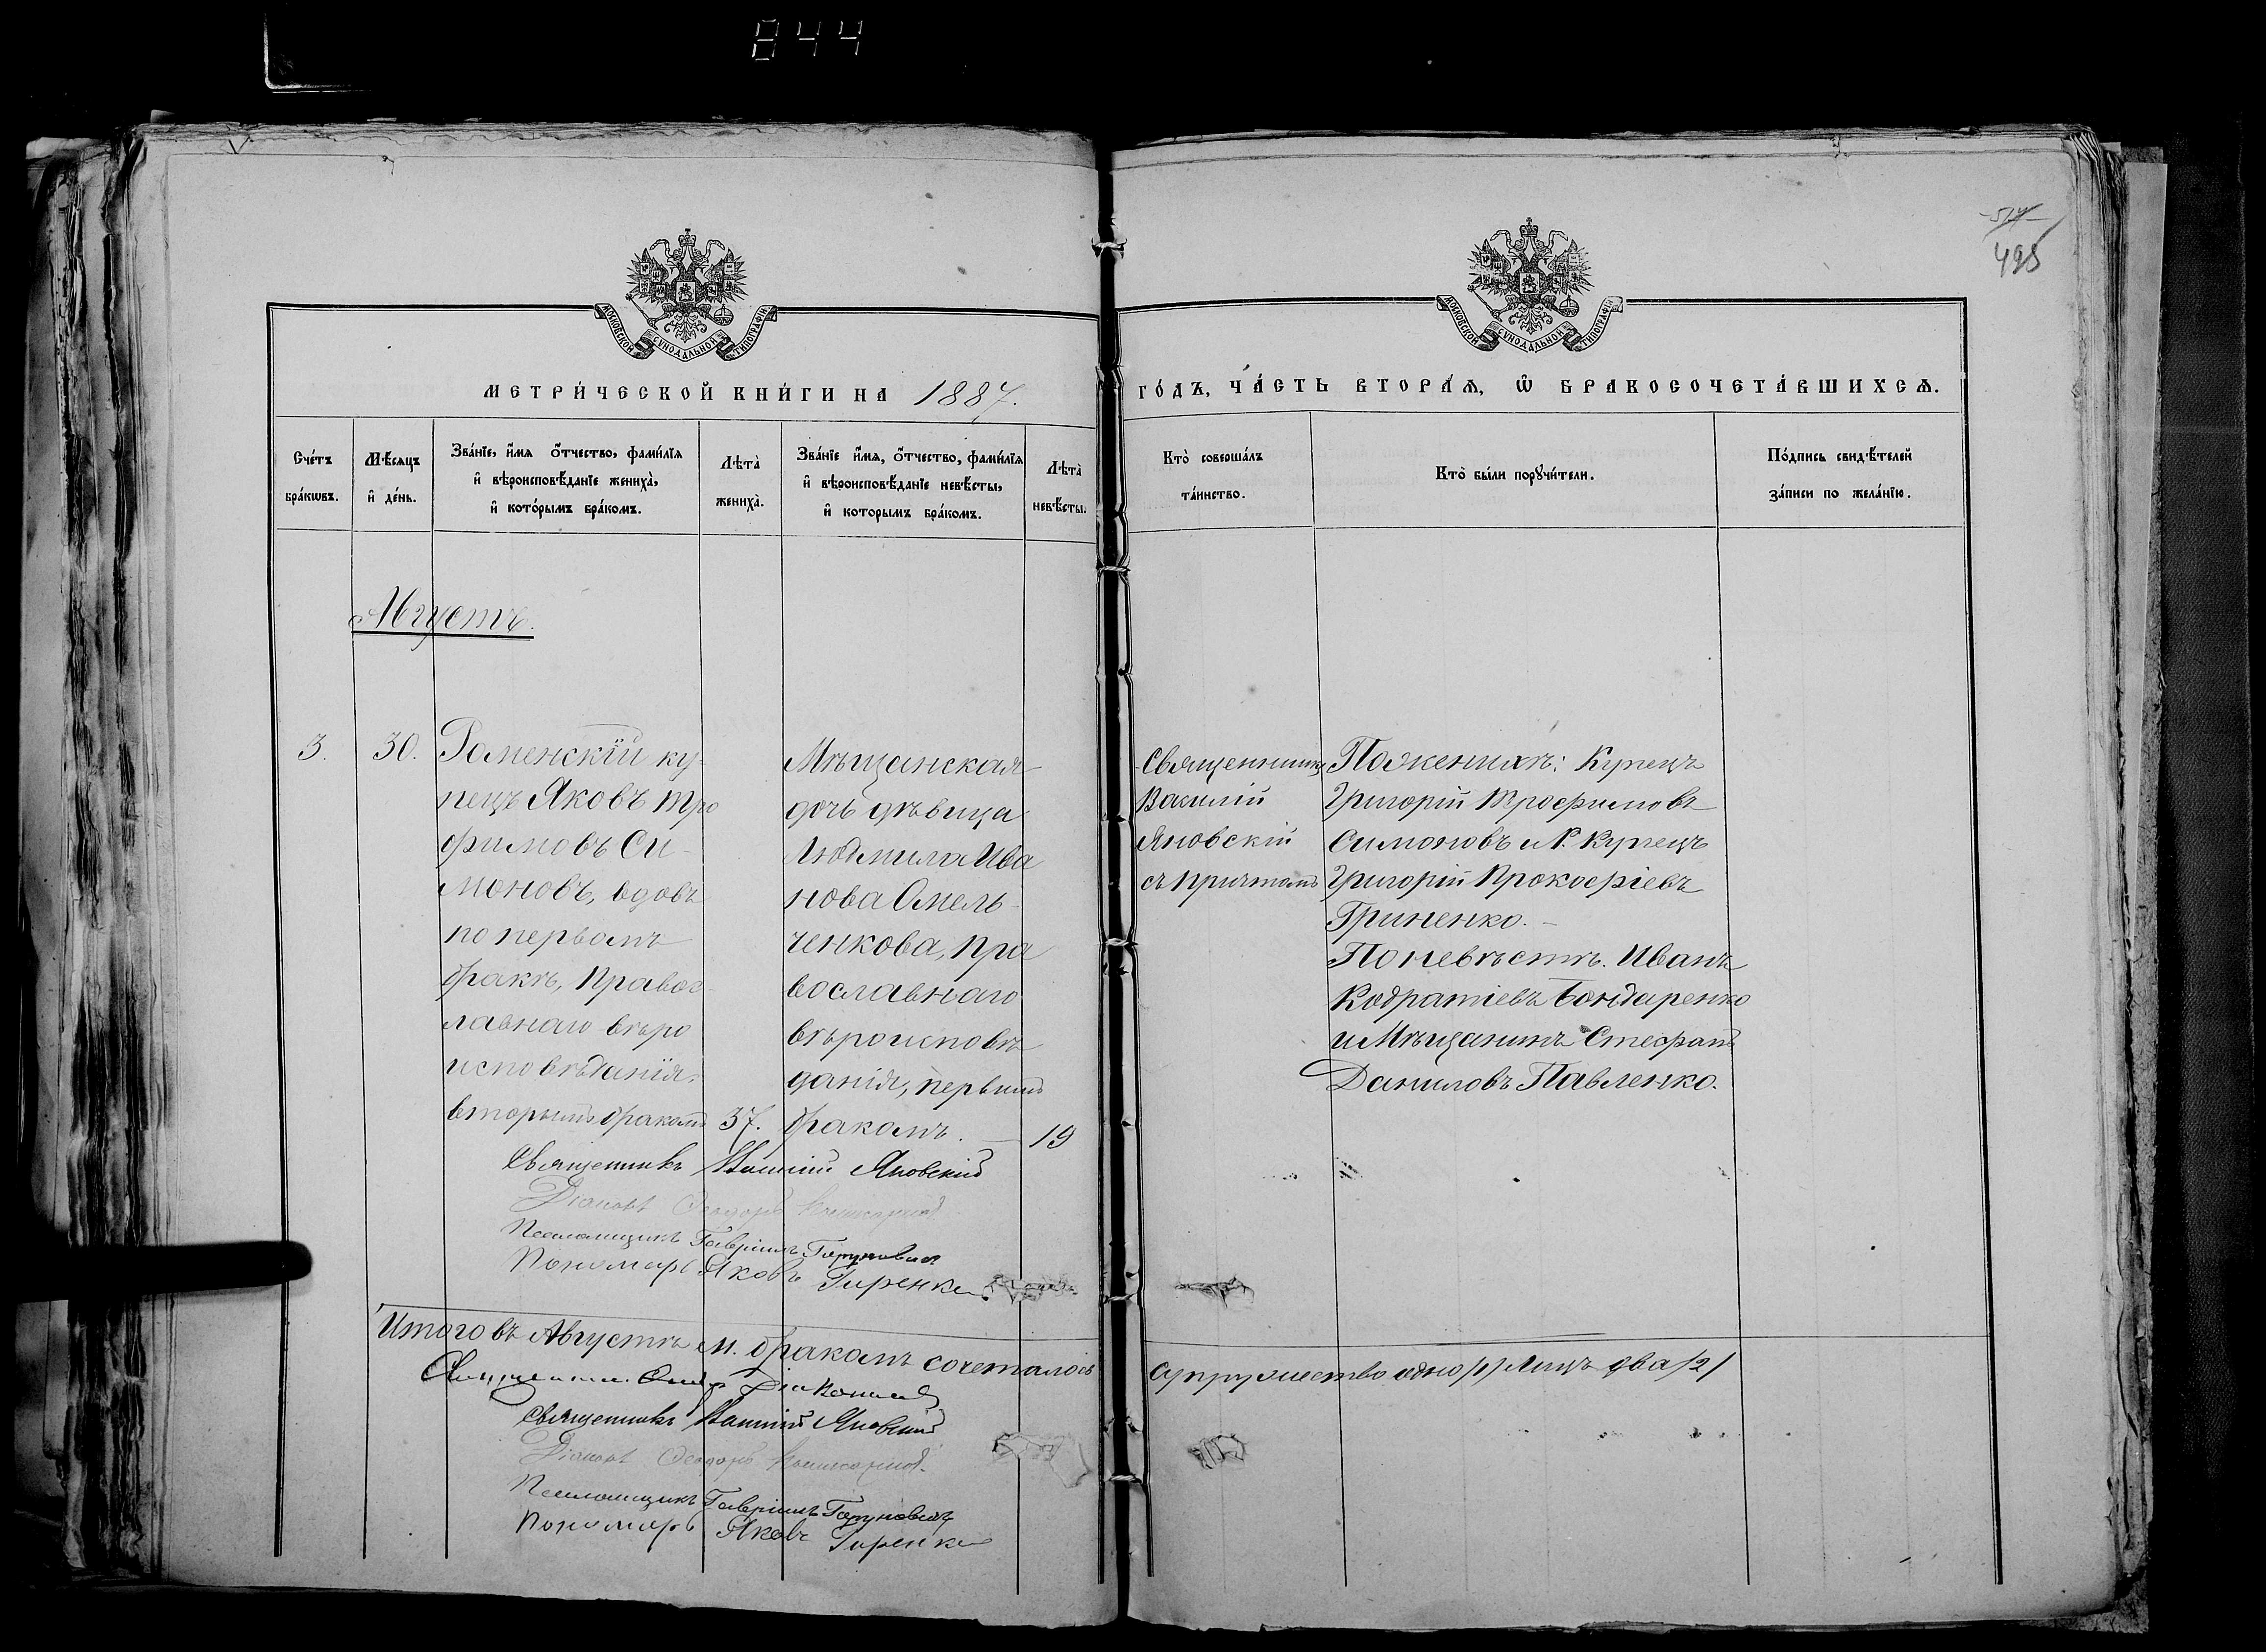 844
514
495
МОСКОВСКОЙ СѴНОДАЛЬНОЙ ТИПОГРАФІИ
МОСКОВСКОЙ СѴНОДАЛЬНОЙ ТИПОГРАФІИ
МЕТРИ́ЧЕСКОЙ КНИ́ГИ НА 1887.
ГО́ДЪ, ЧА́СТЬ ВТОРА́Ѧ, Ѽ БРАКОСОЧЕТА́ВШИХСѦ.
Сче́тъ
бра́кѡвъ.
Мѣ́сяцъ
и҆ де́нь.
Зва́нїе, и҆́мя ѻ҆́тчество, фами́лїя
и҆ вѣроисповѣ́данїе жениха̀,
и҆ кото́рымъ бра́комъ.
Лѣта̀
жениха̀.
Зва́нїе и҆́мя, ѻ҆́тчество, фами́лїя
и҆ вѣроисповѣ́данїе невѣ́сты,
и҆ которымъ бра́комъ.
Лѣта̀
невѣ́сты.
Кто̀ соверша́лъ
та́инство.
Кто̀ бы́ли порꙋчи́тели.
По́дпись свидѣ́телей
за́писи по жела́нїю.
Августъ.
3.
30.
Роменскій ку-
пецъ Яковъ Тро
фимовъ Си-
моновъ, вдовъ
по первомъ
бракѣ, Правос-
лавнаго вѣро
исповѣданія.
вторымъ бракомъ
37.
Мѣщанская
дочь дѣвица
Людмила Ива
нова Омель-
ченкова, пра
вославнаго
вѣроисповѣ
данія, первымъ
бракомъ. —
19
Священникъ
Василій
Яновскій
съ причтомъ
По женихѣ: Купецъ
Григорій Трофимовъ
Симоновъ и Р. Купецъ
Григорій Прокофіевъ
Гриненко. —
По невѣстѣ. Иванъ
Кодратіевъ Бондаренко
и Мѣщанинъ Стефанъ
Даниловъ Павленко.
Священникъ Василій Яновскій
Діаконъ Ѳеодоръ
Псаломщикъ Гавріилъ
Пономарь Яковъ Гиренко
Итого въ Августѣ м. бракомъ сочеталось
супружество одно /1/ Лицъ два /2/
Священникъ Василій Яновскій
Діаконъ Ѳеодоръ
Псаломщикъ Гавріилъ
Пономарь Яковъ Гиренко